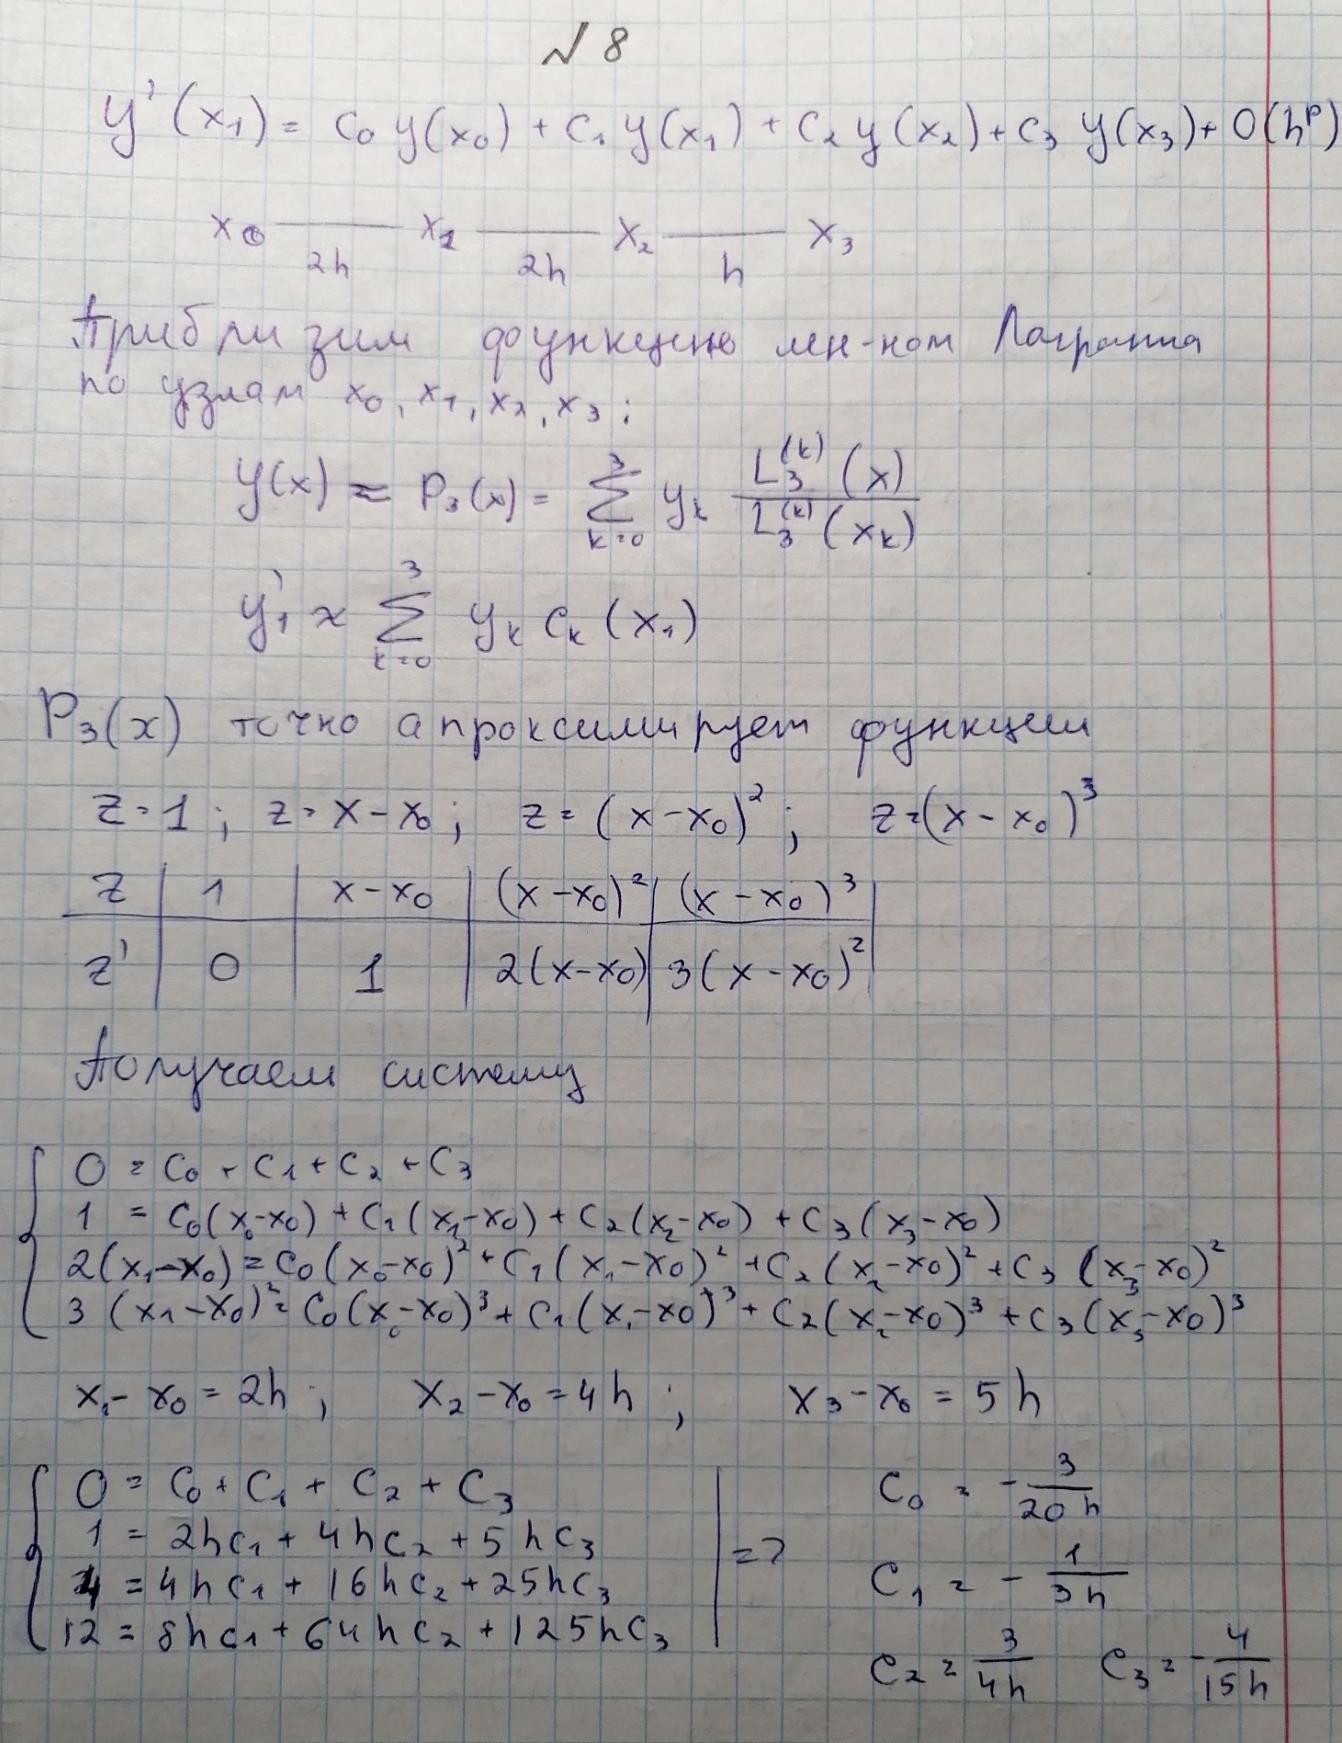 № 8
y'(x₁) = c₀ y(x₀) + c₁ y(x₁) + c₂ y(x₂) + c₃ y(x₃) + O(hᵖ)
x₀ —— x₁ —— x₂ —— x₃
2h 2h h
Приблизим функцию мн-ном Лагранжа
по узлам x₀, x₁, x₂, x₃ :
y(x) ≈ P₃(x) = ∑_{k=0}^{3} yₖ L₃^{(k)}(x) / L₃^{(k)}(xₖ)
y₁' ≈ ∑_{k=0}^{3} yₖ cₖ(x₁)
P₃(x) точно апроксимирует функции
z = 1 ; z = x - x₀ ; z = (x - x₀)² ; z = (x - x₀)³
z | 1 | x - x₀ | (x - x₀)² | (x - x₀)³
z' | 0 | 1 | 2(x - x₀) | 3(x - x₀)²
Получаем систему
0 = c₀ + c₁ + c₂ + c₃
1 = c₀(x₀-x₀) + c₁(x₁-x₀) + c₂(x₂-x₀) + c₃(x₃-x₀)
2(x₁-x₀) = c₀(x₀-x₀)² + c₁(x₁-x₀)² + c₂(x₂-x₀)² + c₃(x₃-x₀)²
3(x₁-x₀)² = c₀(x₀-x₀)³ + c₁(x₁-x₀)³ + c₂(x₂-x₀)³ + c₃(x₃-x₀)³
x₁ - x₀ = 2h ; x₂ - x₀ = 4h ; x₃ - x₀ = 5h
0 = c₀ + c₁ + c₂ + c₃
1 = 2hc₁ + 4hc₂ + 5hc₃
4 = 4hc₁ + 16hc₂ + 25hc₃
12 = 8hc₁ + 64hc₂ + 125hc₃
=>
c₀ = - 3/20h
c₁ = - 1/3h
c₂ = 3/4h c₃ = - 4/15h